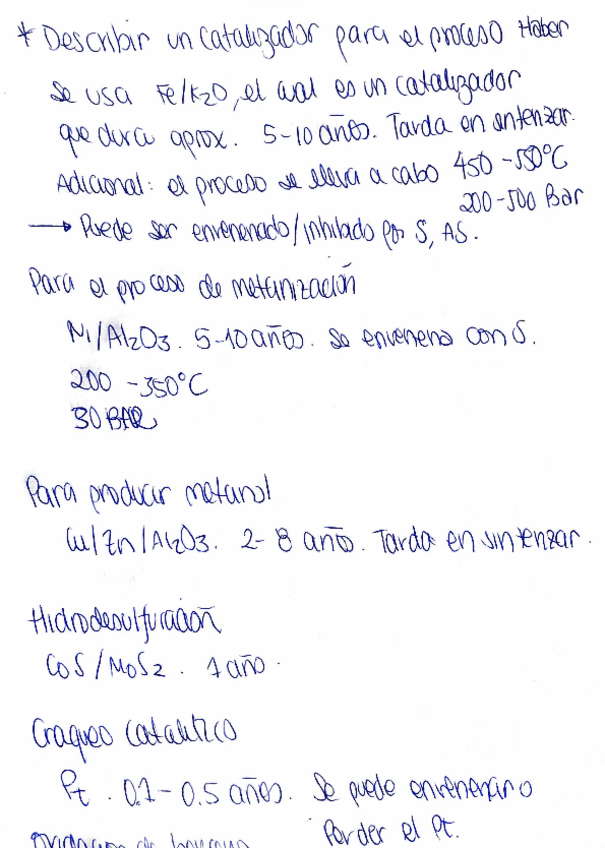 * Describir un catalizador para el proceso Haber
Se usa Fe/K2O, el cual es un catalizador
que dura aprox. 5-10 años. Tarda en sintenzar.
Adicional: el proceso se lleva a cabo 450-550°C
200-500 Bar
→ Puede ser envenenado/inhibado por S, AS.
Para el proceso de metanización
Ni/Al2O3. 5-10 años. Se envenena con S.
200 - 350°C
30 BAR
Para producir metanol
Cu/Zn/Al2O3. 2-8 año. Tarda en sintenzar.
Hidrodesulfuración
CoS/MoS2. 1 año.
Craqueo catalítico
Pt. 0.1 - 0.5 años. Se puede envenenar o
Perder el Pt.
Oxidación de